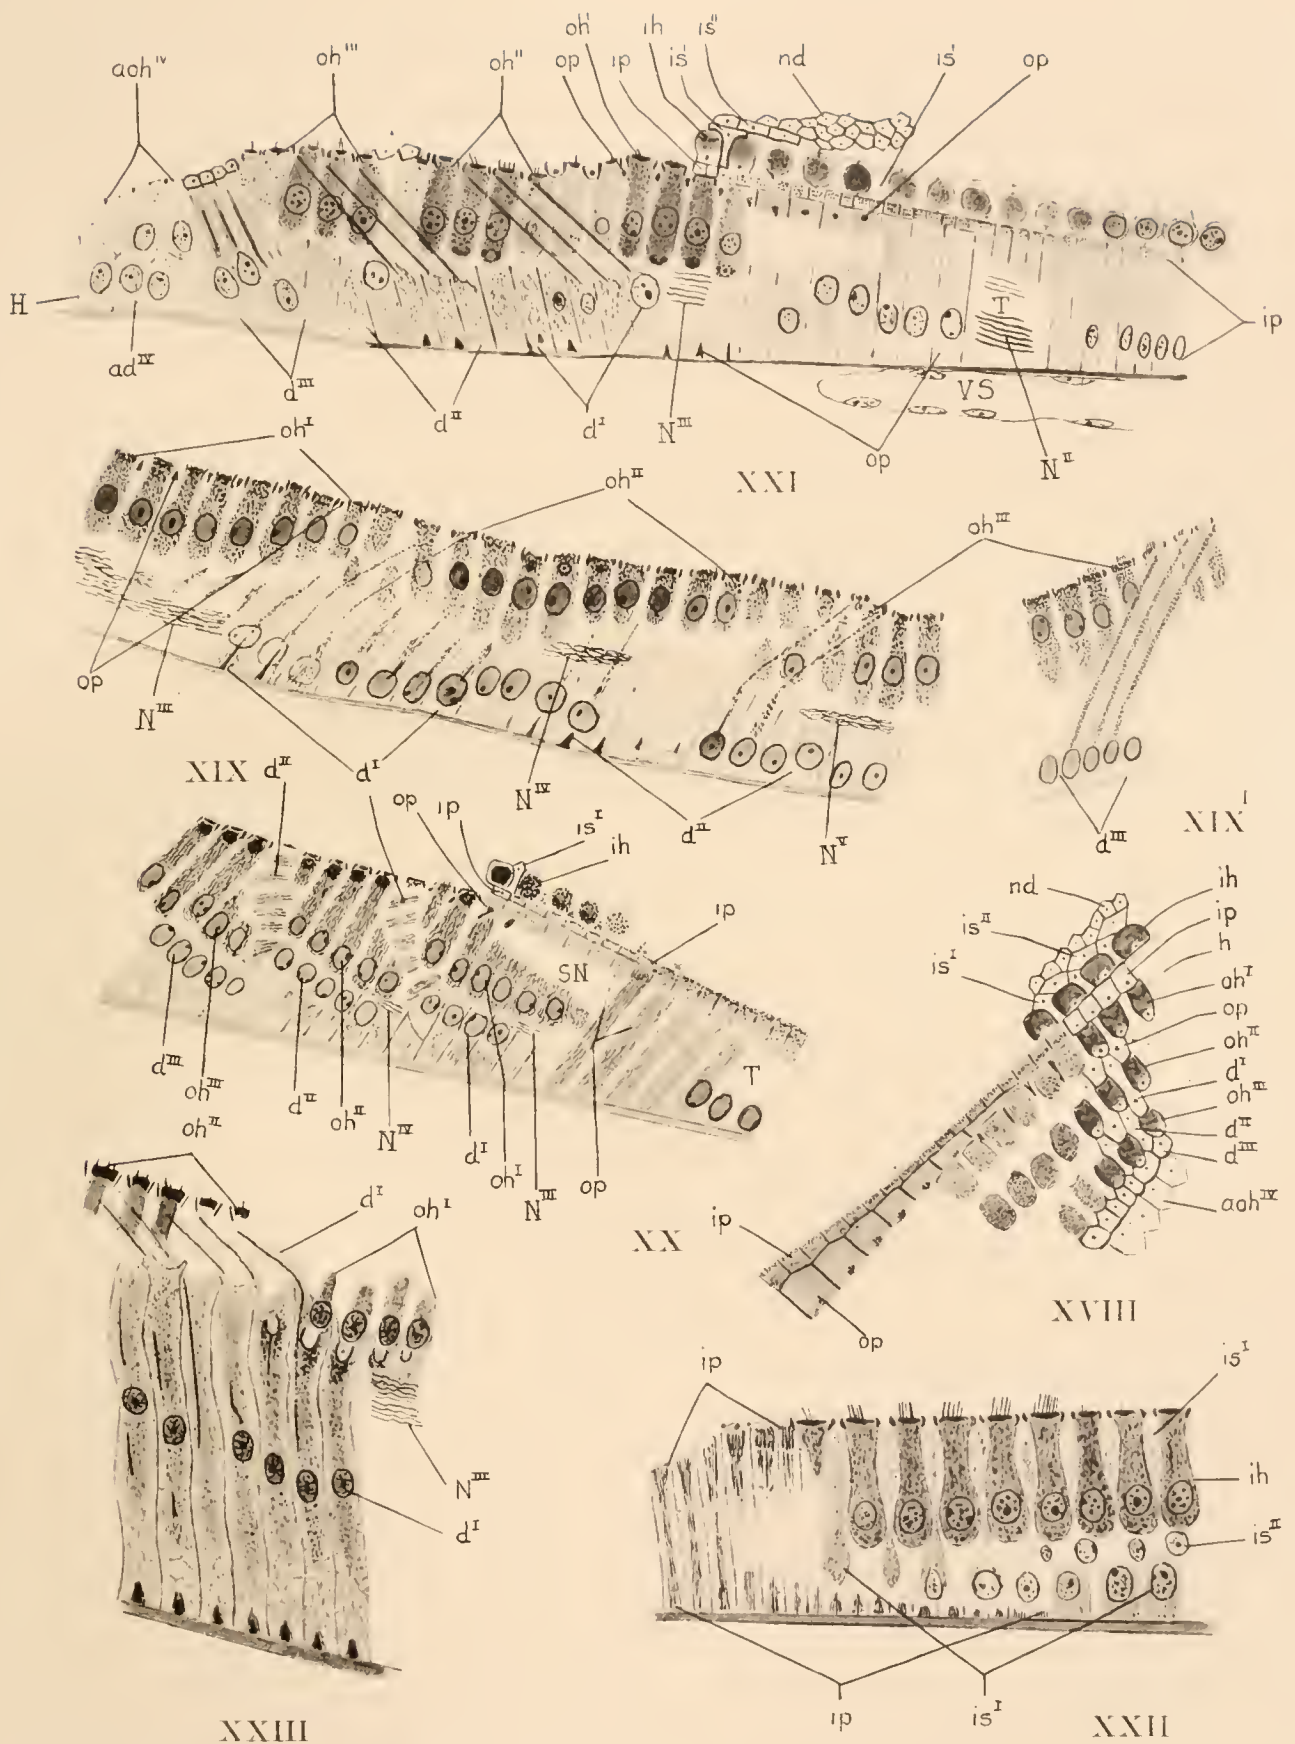 oh' ih is"
aoh^IV oh''' oh" op ıp is' nd is' op
H
ad^IV
d^III
d^II
d^I
N^III
op
VS
T
N^II
ip
XXI
oh^I
oh^II
oh^III
op
N^III
XIX
d^I
N^IV
d^II
N^V
d^III
XIX^I
d^II
op
ıp
is^I
ih
ıp
SN
T
d^III
oh^III
d^II
oh^II
N^IV
d^I
oh^I
N^III
op
XX
nd
is^II
is^I
ih
ip
h
oh^I
op
oh^II
d^I
oh^III
d^II
d^III
aoh^IV
ip
op
XVIII
oh^II
d^I
oh^I
N^III
d^I
XXIII
ip
is^I
ih
is^II
ıp
is^I
XXII